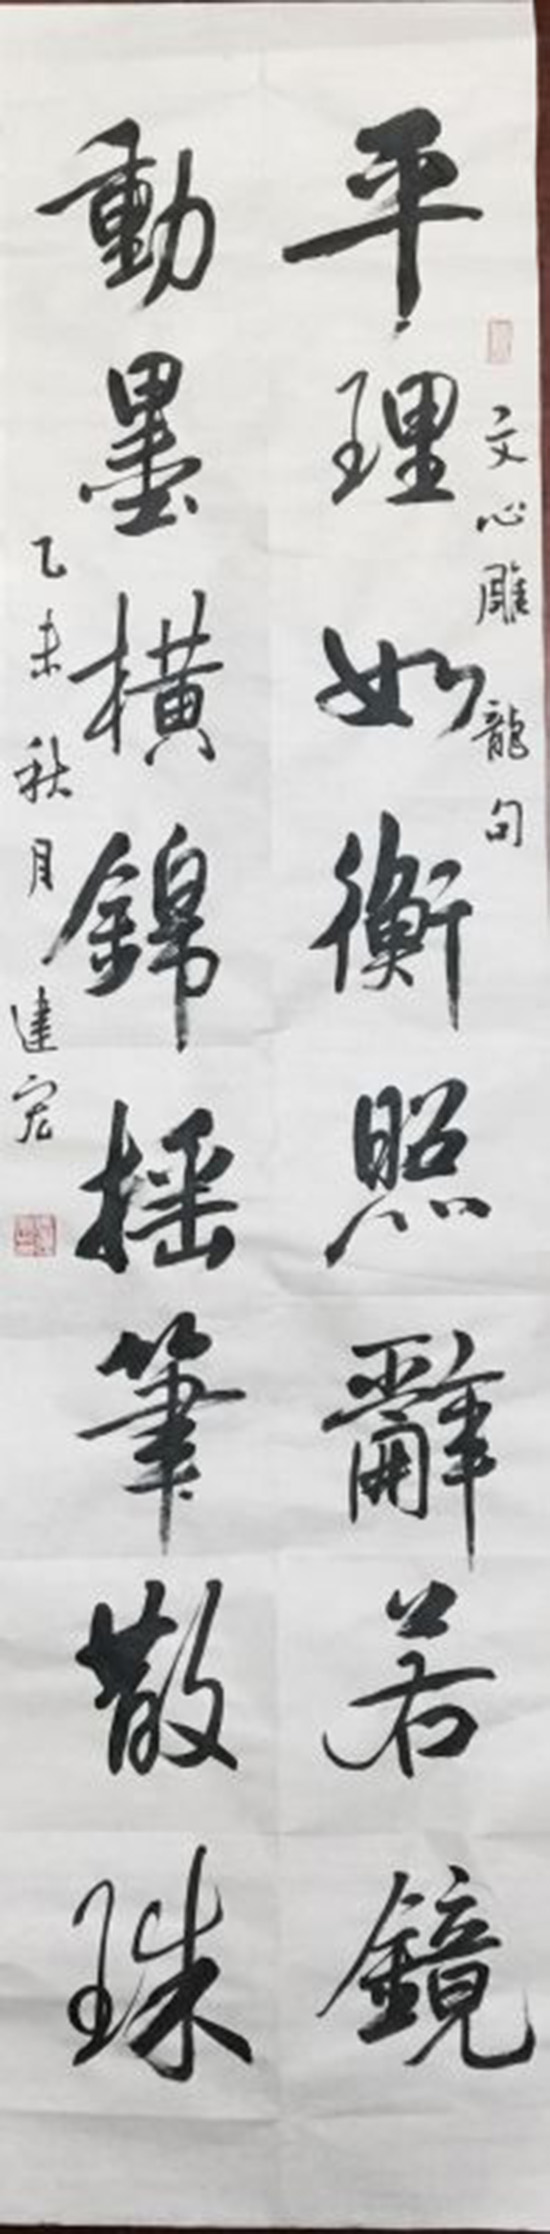 文心雕龍句
平理如衡照辭若鏡
動墨橫錦摇筆散珠
乙未秋月建宏